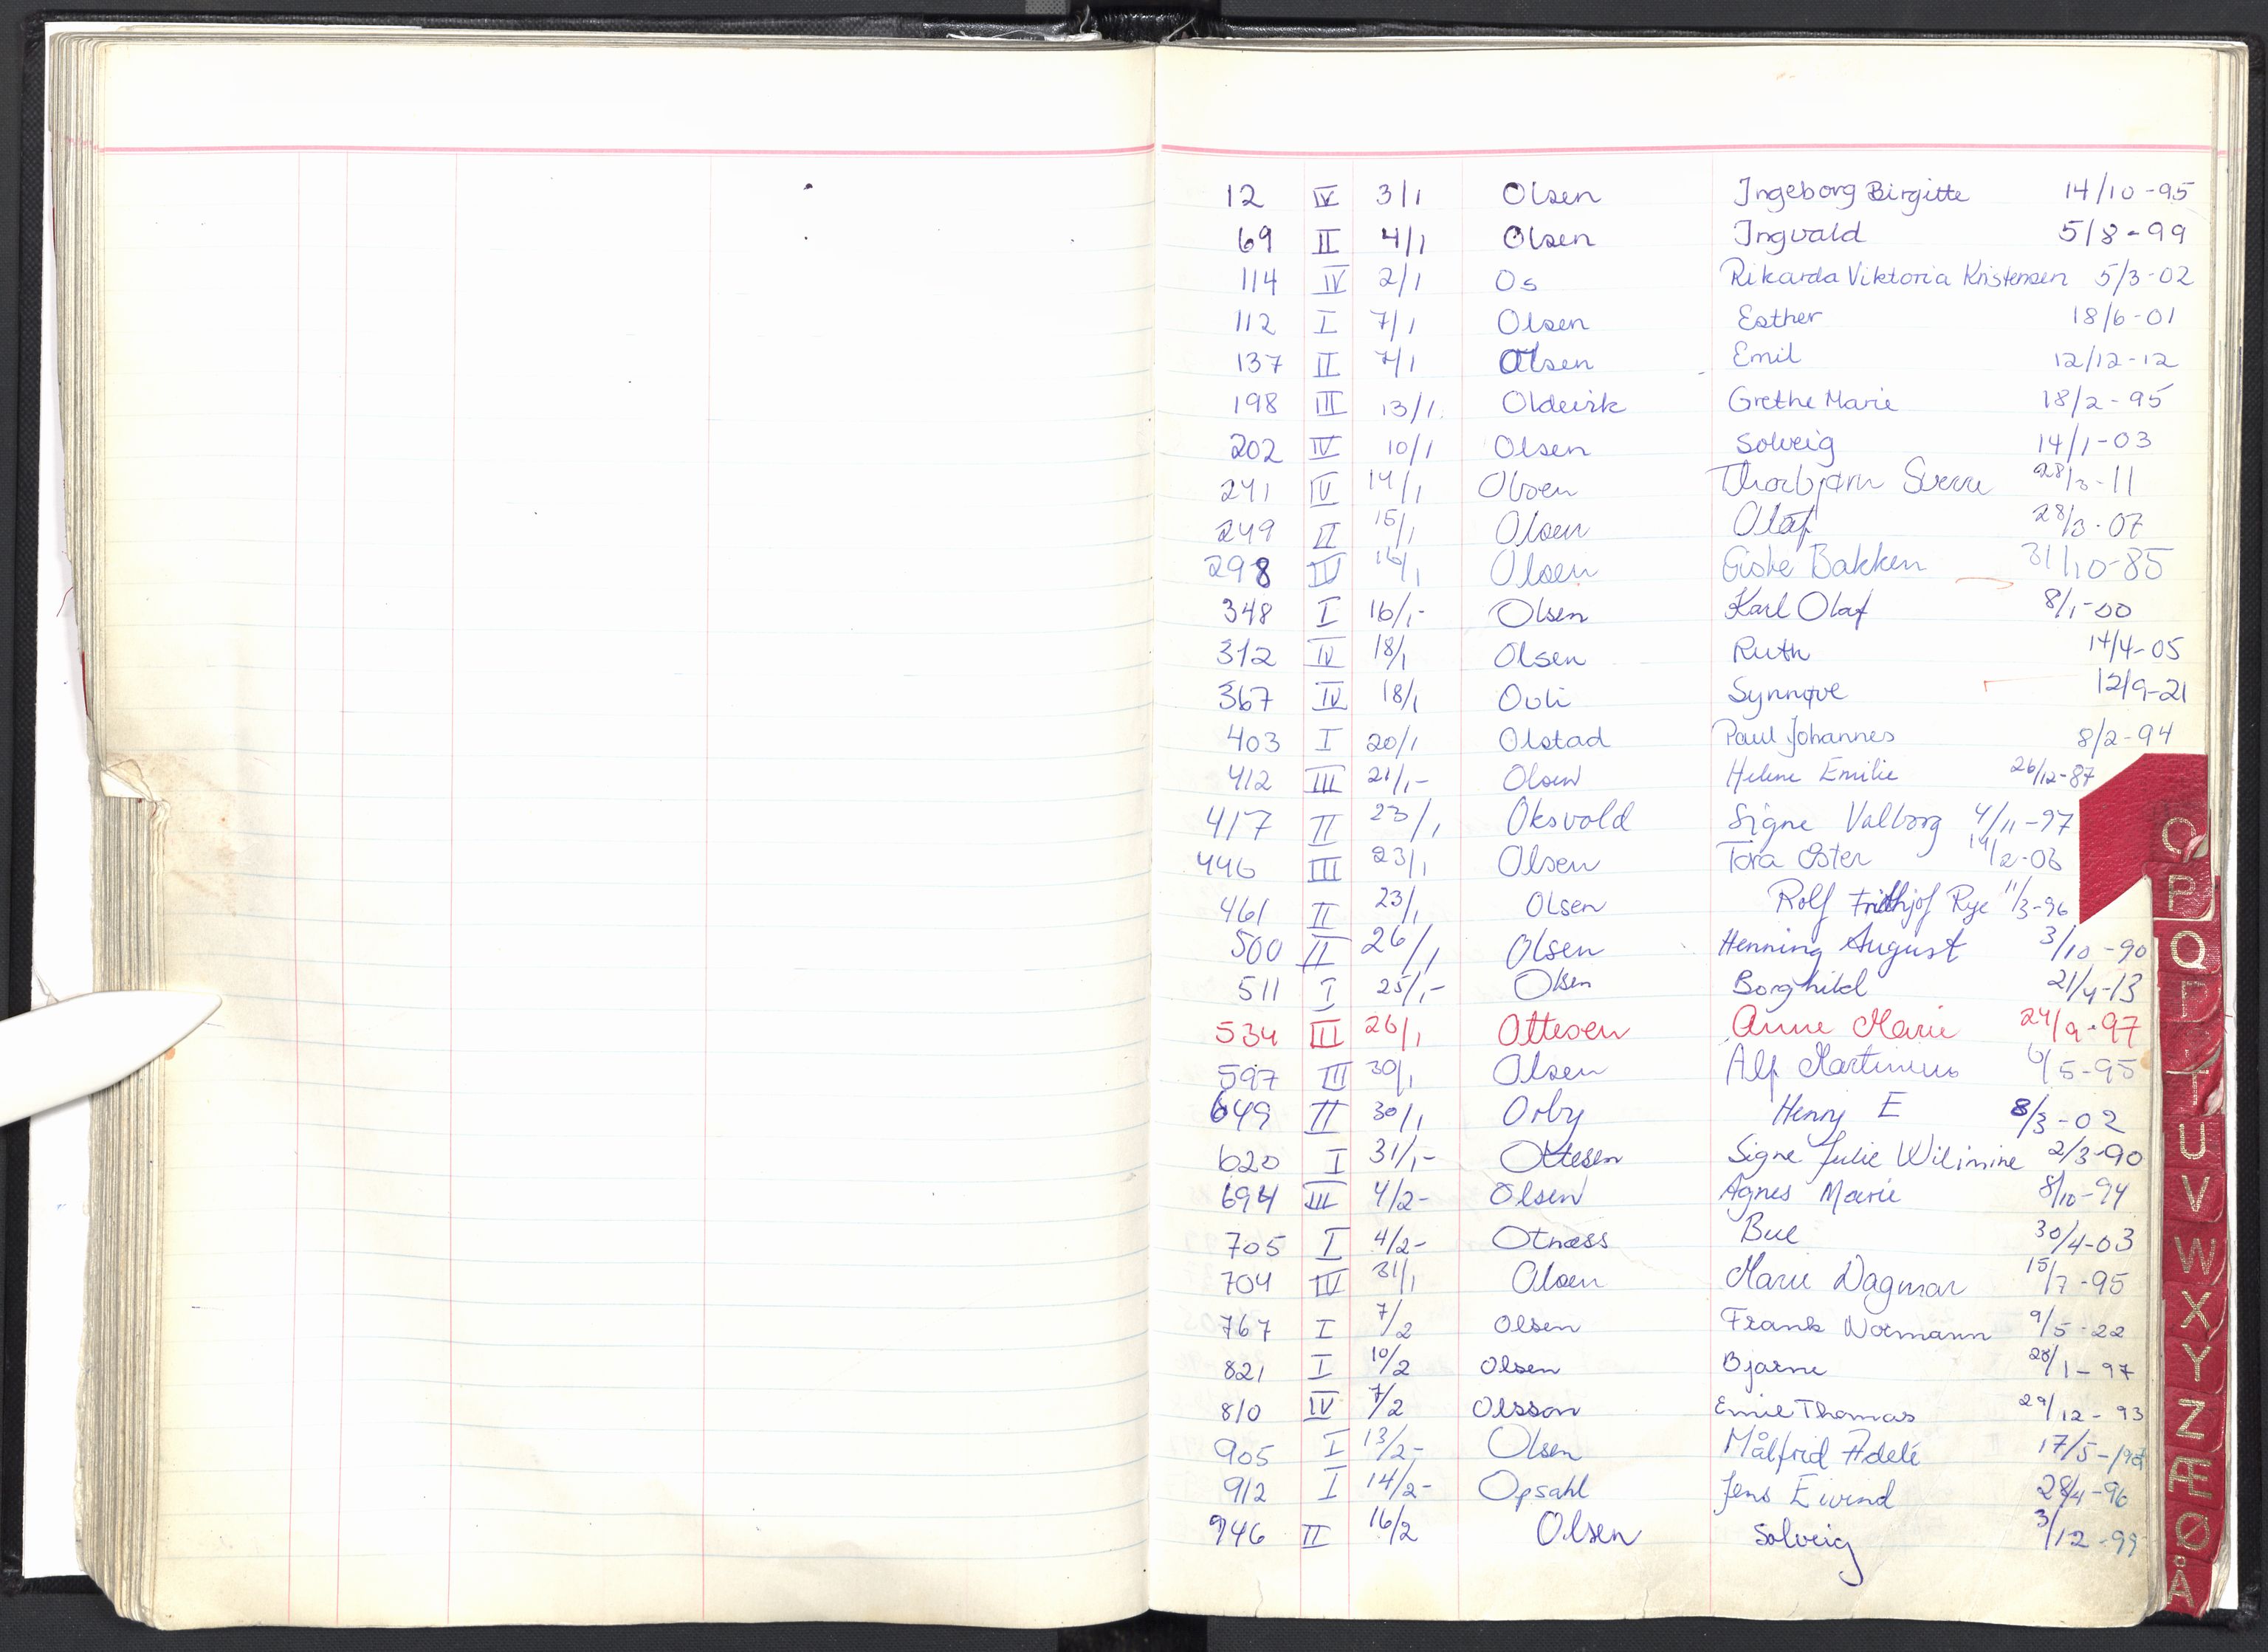 12 IV 3/1 Olsen Ingeborg Birgitte 14/10-95
69 II 4/1 Olsen Ingvald 5/8-99
114 IV 2/1 Os Rikarda Viktoria Kristensen 5/3-02
112 I 7/1 Olsen Esther 18/6-01
137 II 7/1 Olsen Emil 12/12-12
198 III 13/1 Oldeirk Grethe Marie 18/2-95
202 IV 10/1 Olsen Solveig 14/1-03
241 IV 14/1 Olsen Thorbjørn Sverre 28/3-11
249 II 15/1 Olsen Olaf 28/3-07
298 IV 16/1 Olsen Giske Bakken 31/10-85
348 I 16/1- Olsen Karl Olaf 8/1-00
312 IV 18/1 Olsen Ruth 14/4-05
367 IV 18/1 Ovli Synnøve 12/9-21
403 I 20/1 Olstad Paul Johannes 8/2-94
412 III 21/1- Olsen Helene Emilie 26/12-87
417 II 23/1 Oksvold Signe Valborg 4/11-97
446 III 23/1 Olsen Tora Ester 14/2-06
461 II 23/1 Olsen Rolf Fridthjof Rye 11/3-96
500 II 26/1 Olsen Henning August 3/10-90
511 I 25/1- Olsen Borghild 21/4-13
534 III 26/1 Ottesen Anne Marie 24/9-97
597 III 30/1 Olsen Alf Martinius 6/5-95
649 II 30/1 Orby Henry E 8/3-02
620 I 31/1- Ottesen Signe Julie Wilimine 2/3-90
694 III 4/2- Olsen Agnes Marie 8/10-94
705 I 4/2- Otnæss Bue 30/4-03
704 IV 31/1 Olsen Marie Dagmar 15/7-95
767 I 7/2 Olsen Frank Normann 9/5-22
821 I 10/2 Olsen Bjarne 28/1-97
810 IV 7/2 Olsson Emil Thomas 29/12-93
905 I 13/2- Olsen Målfrid Adele 17/5-
912 I 14/2- Opsahl Jens Eivind 28/4-96
946 II 16/2 Olsen Solveig 3/12-99
O
P
Q
R
T
U
V
W
X
Y
Z
Æ
Ø
Å